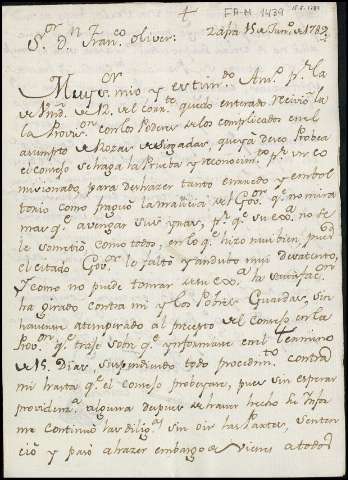 FA-M 1439
S.ʳ D.ⁿ Fran.ᶜᵒ Oliver:
Zafra 15 de Jun.º de 1782
Muy s.ᵒʳ mio y estim.ᵈᵒ Am.º p.ʳ la
de Vmd. de 12 del corr.ᵗᵉ quedo enterado recivio la
la Provis.ⁿ con los Poderes de los complicados en el
asumpto de Rozas de
el consejo se haga la Prueba y reconocim.ᵗᵒ p.ʳ un co
misionado, para deshazer tanto enrredo y embol
torio como fraguó la malicia del Gov.ᵒʳ q.ᵉ no mira
mas q.ᵉ a vengar sus p.ʳ q.ᵉ su Ex.ᵃ no se
le sometió como todos, en lo q.ᵉ hizo mui bien, pues
el citado Gov.ᵒʳ le faltó y anduvo mui desatento,
y como no puede tomar de su Ex.ᵃ la satisfac.ᵒⁿ
ha girado contra mi y los Pobres Guardas, sin
haverse atemperado al precepto del Consejo en la
Pro.ᵒⁿ q.ᵉ traje sobre q.ᵉ ynformase en el Termino
de 15 Dias, suspendiendo todo procedim.ᵗᵒ contra
mi hasta q.ᵉ el Consejo probeyere, pues sin esperar
providenz.ᵃ alguna despues de haver hecho su Infor
me continuó las dilig.ˢ sin oir las Partes, senten
ció y pasó a hazer embargo de Vienes a todos